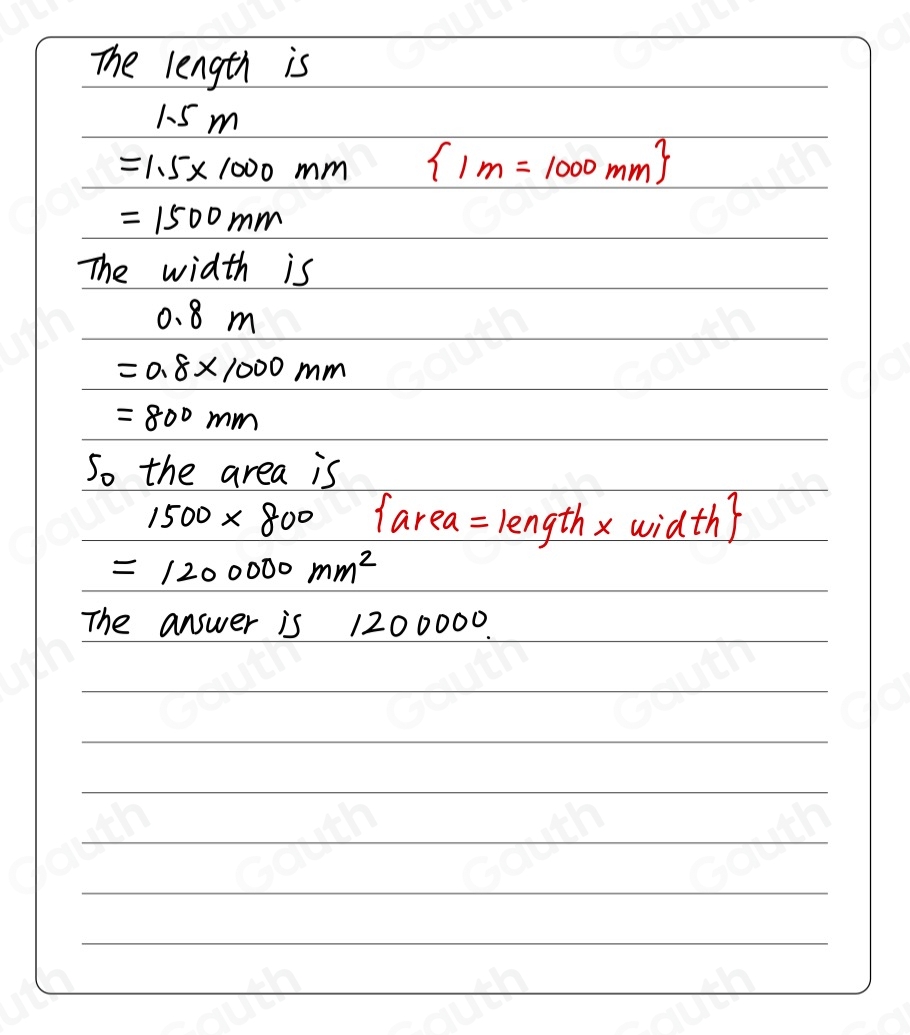 The length is
1.5 m
=1.5×1000 mm {1m = 1000 mm}
= 1500mm
The width is
0.8 m
=0.8×1000 mm
= 800 mm
So the area is
1500 × 800 {area = length × width}
= 1200000 mm²
The answer is 1200000.
Gauth